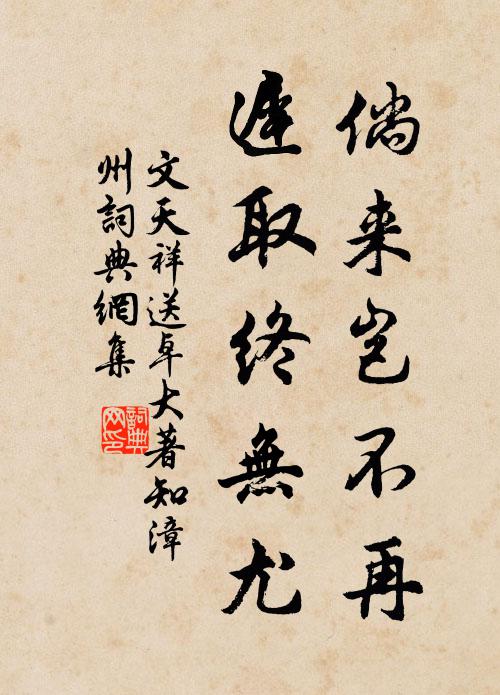 倘来岂不再
遲取終無尤
文天祥送卓大著知漳
州詞典網集
詞典网印